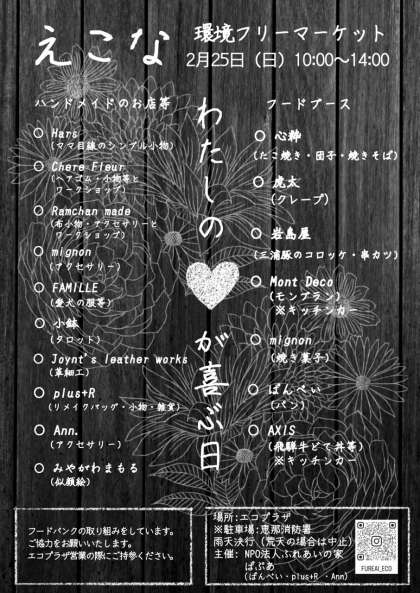 えこな
環境フリーマーケット
2月25日（日）10:00～14:00
ハンドメイドのお店等
○ Hars
(ママ目線のシンプル小物)
○ Chere Fleur
(ヘアゴム・小物等と
ワークショップ)
○ Ramchan made
(布小物・アクセサリーと
ワークショップ)
○ mignon
(アクセサリー)
○ FAMILLE
(愛犬の服等)
○ 小鉢
(タロット)
○ Joynt's leather works
(革細工)
○ plus+R
(リメイクバッグ・小物・雑貨)
○ Ann.
(アクセサリー)
○ みやがわまもる
(似顔絵)
わたしの
が喜ぶ日
フードブース
(たこ焼き・団子・焼きそば)
○ 虎太
(クレープ)
○ 岩島屋
(三浦豚のコロッケ・串カツ)
○ Mont Deco
(モンブラン)
※キッチンカー
○ mignon
(焼き菓子)
○ ぱんべぃ
(パン)
○ AXIS
(飛騨牛どて丼等)
※キッチンカー
フードバンクの取り組みをしています。
ご協力をお願いいたします。
エコプラザ営業の際にご持参ください。
場所:エコプラザ
※駐車場:恵那消防署
雨天決行（荒天の場合は中止）
主催: NPO法人ふれあいの家
ぱぷあ
(ぱんべい・plus+R ・Ann)
FUREAI_ECO